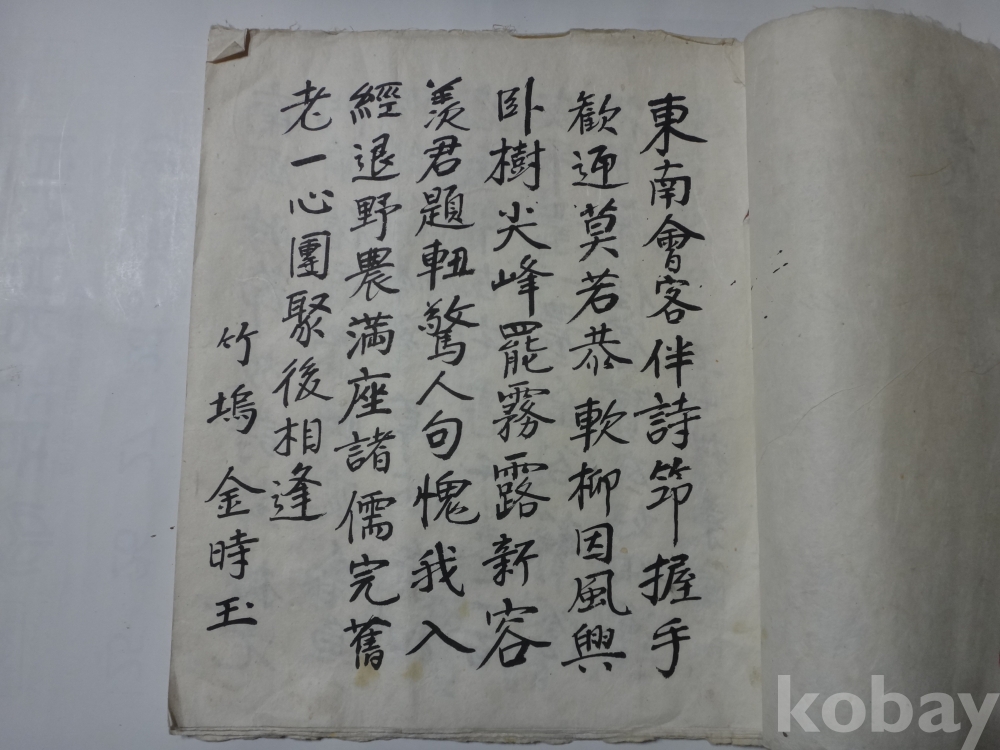 東南會客伴詩筇握手
歡迎莫若恭軟柳因風興
卧樹尖峰罷霧露新容
羨君題軸驚人句愧我入
經退野農滿座諸儒完舊
老一心團聚後相逢
竹塢 金時玉
kobay